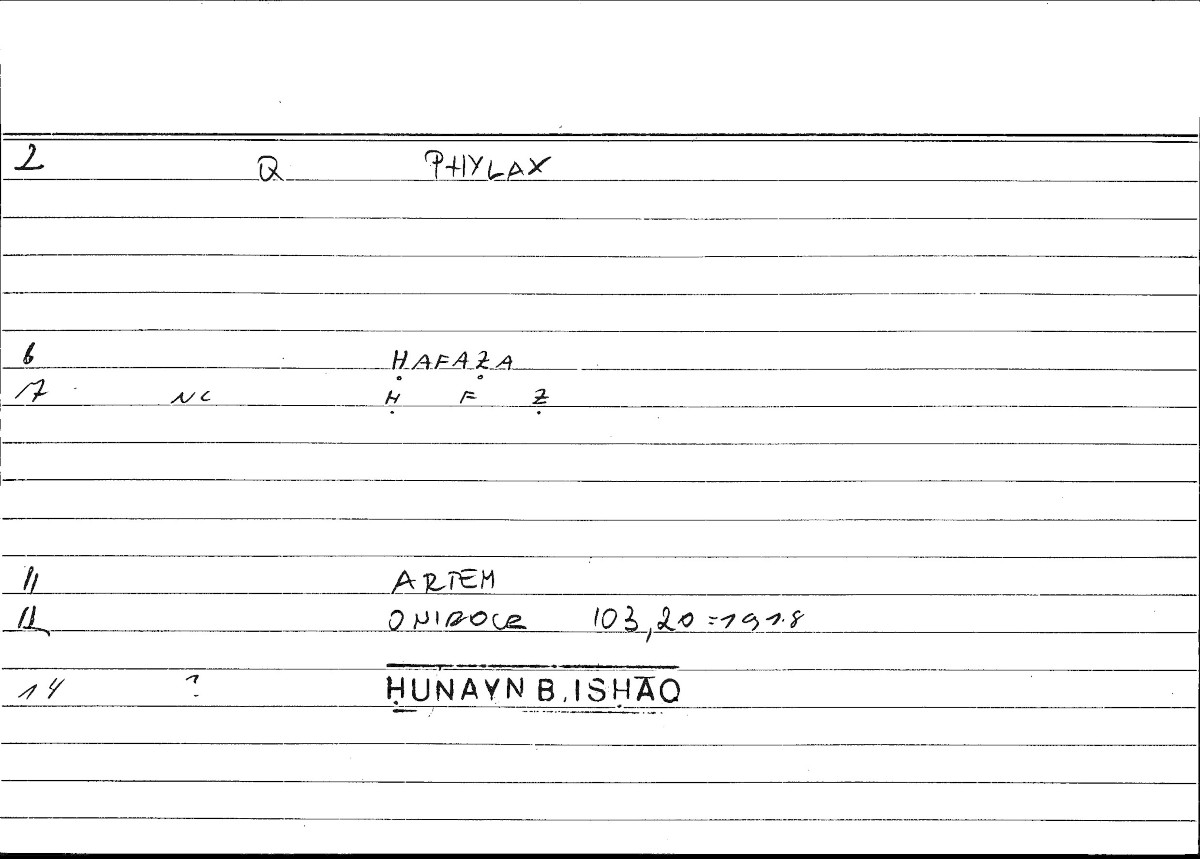 2 Q PHYLAX
6 ḤAFAẒA
7 NC Ḥ F Ẓ
11 ARTEM
12 ONIROCR 103,20=191.8
14 ? ḤUNAYN B. ISḤĀQ